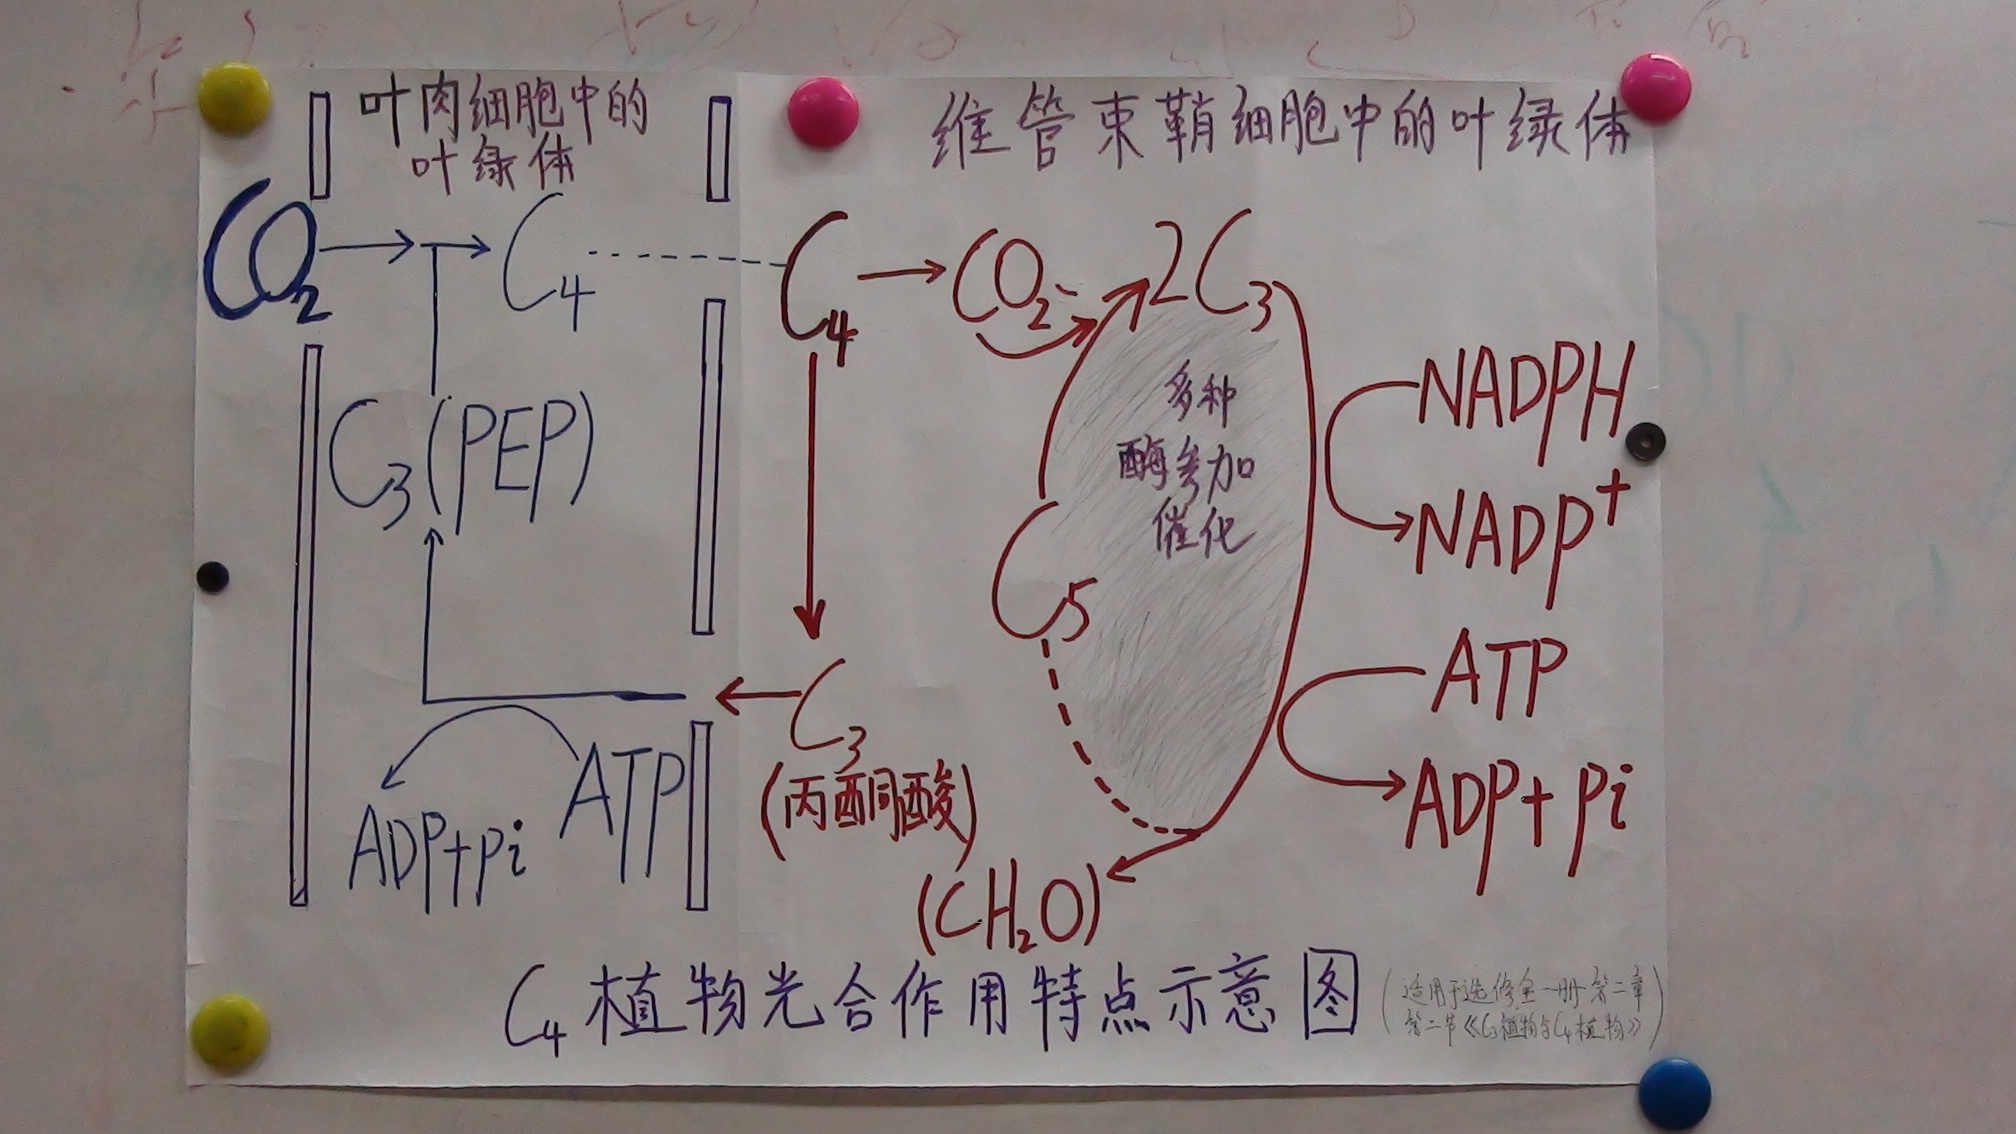 叶肉细胞中的
叶绿体
维管束鞘细胞中的叶绿体
CO₂
C₄
C₄
CO₂
2C₃
C₃(PEP)
多种
酶参加
催化
NADPH
NADP⁺
C₅
ATP
ADP+Pi
C₃
(丙酮酸)
ATP
ADP+Pi
(CH₂O)
C₄植物光合作用特点示意图
(适用于选修全一册第二章
第二节《C₃植物与C₄植物》)